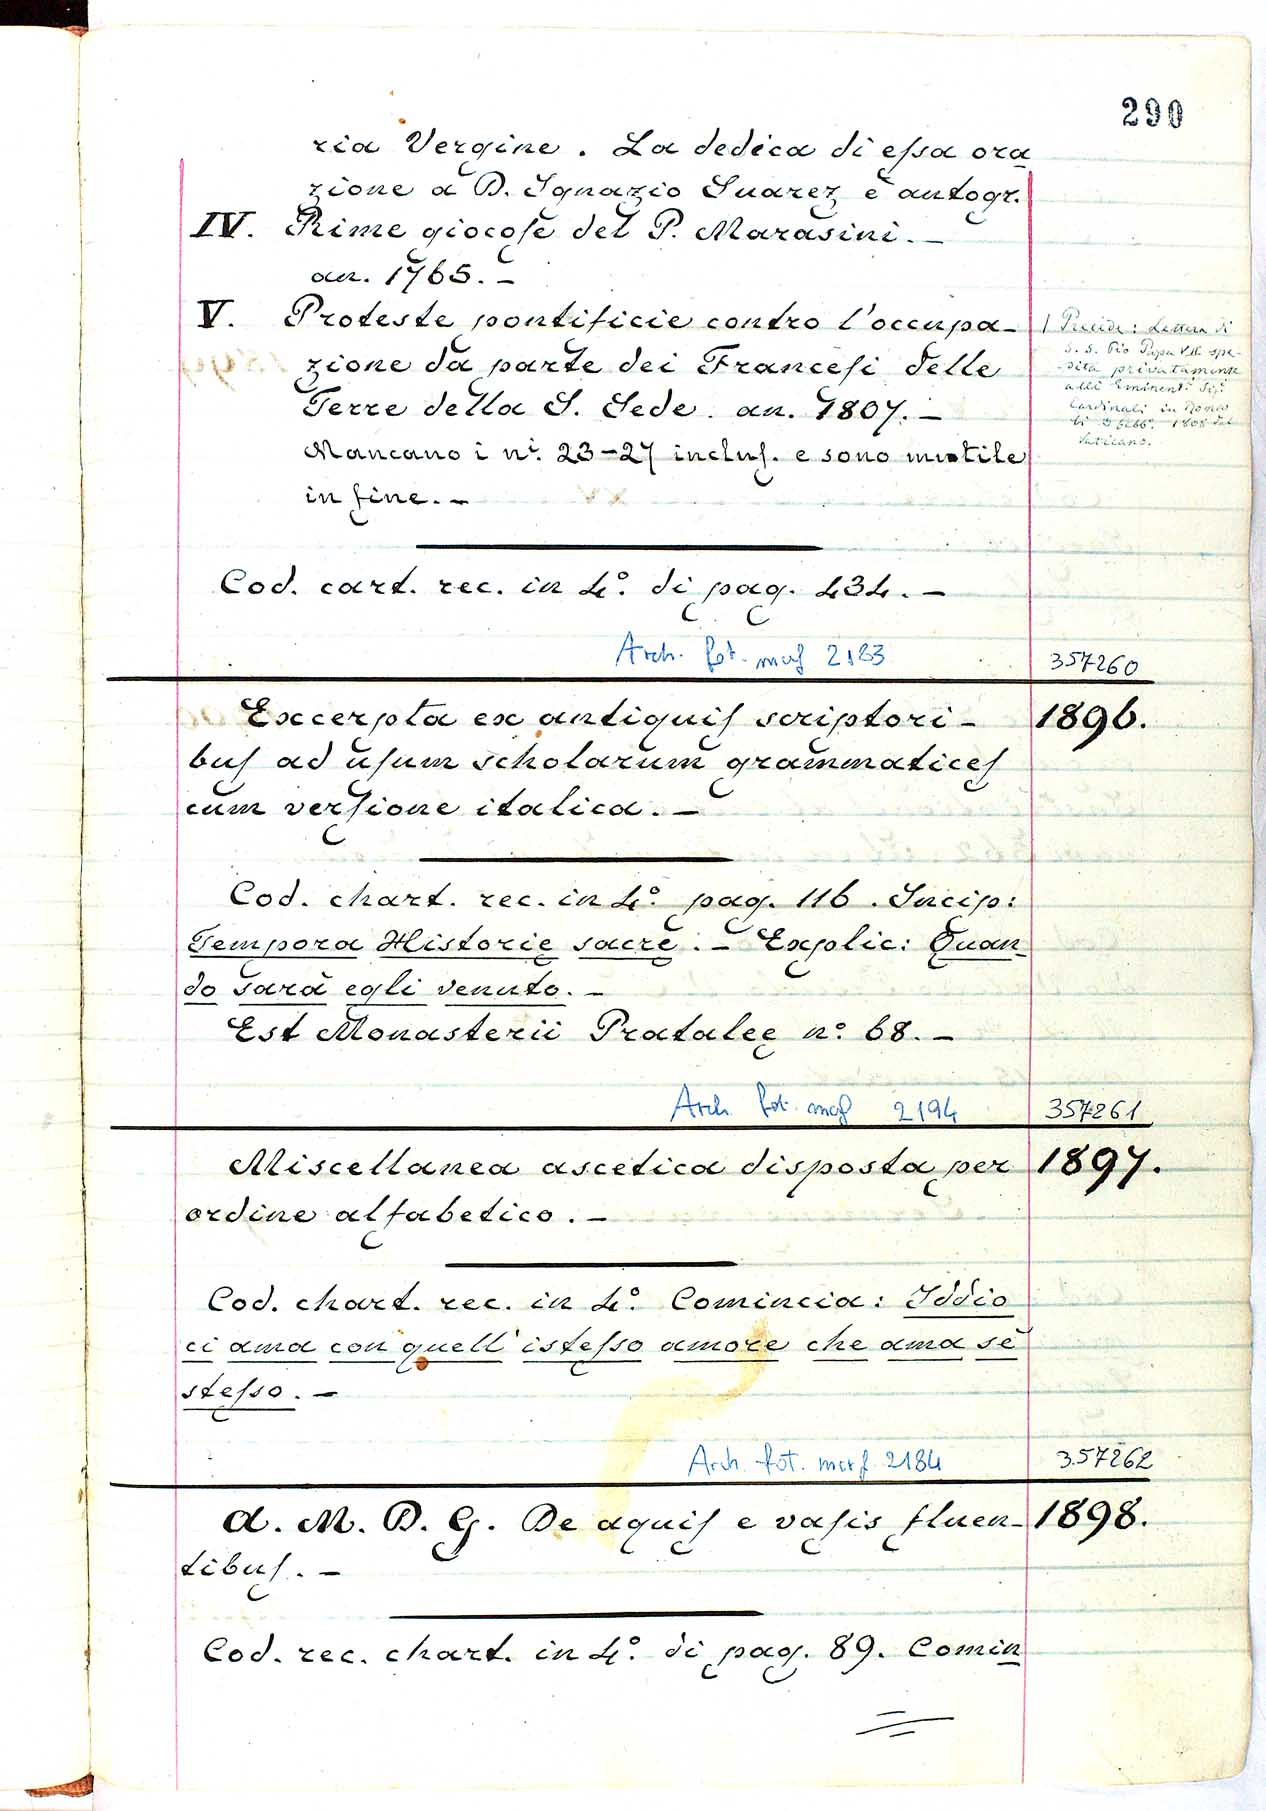 290
ria Vergine. La dedica di essa ora
zione a D. Ignazio Suarez è autogr.
IV. Rime giocose del P. Marasini. –
an. 1765. –
V. Proteste pontificie contro l'occupa-
zione da parte dei Francesi delle
Terre della S. Sede. an. 1807. –
Mancano i nⁱ. 23-27 inclus. e sono mutile
in fine. –
Precede: Lettera di
S. S. Pio Papa VII spe-
dita privatamente
alli Eminent.ⁱ Sigⁱ
Cardinali in Roma
li 5 Febb.º 1808 dal
Vaticano.
Cod. cart. rec. in 4º. di pag. 434. –
Arch. fot. mcf 2183
357260
Excerpta ex antiquis scriptori- 1896.
bus ad usum scholarum grammatices
cum versione italica. –
Cod. chart. rec. in 4º. pag. 116. Incip:
Tempora Historię sacrę. – Explic: Quan-
do sarà egli venuto. –
Est Monasterii Prataleę nº. 68. –
Arch. fot. mcf 2194
357261
Miscellanea ascetica disposta per 1897.
ordine alfabetico. –
Cod. chart. rec. in 4º. Comincia: Iddio
ci ama con quell'istesso amore che ama sè
stesso. –
Arch. fot. mcf 2184
357262
A. M. D. G. De aquis e vasis fluen- 1898.
tibus. –
Cod. rec. chart. in 4º. di pag. 89. Comin